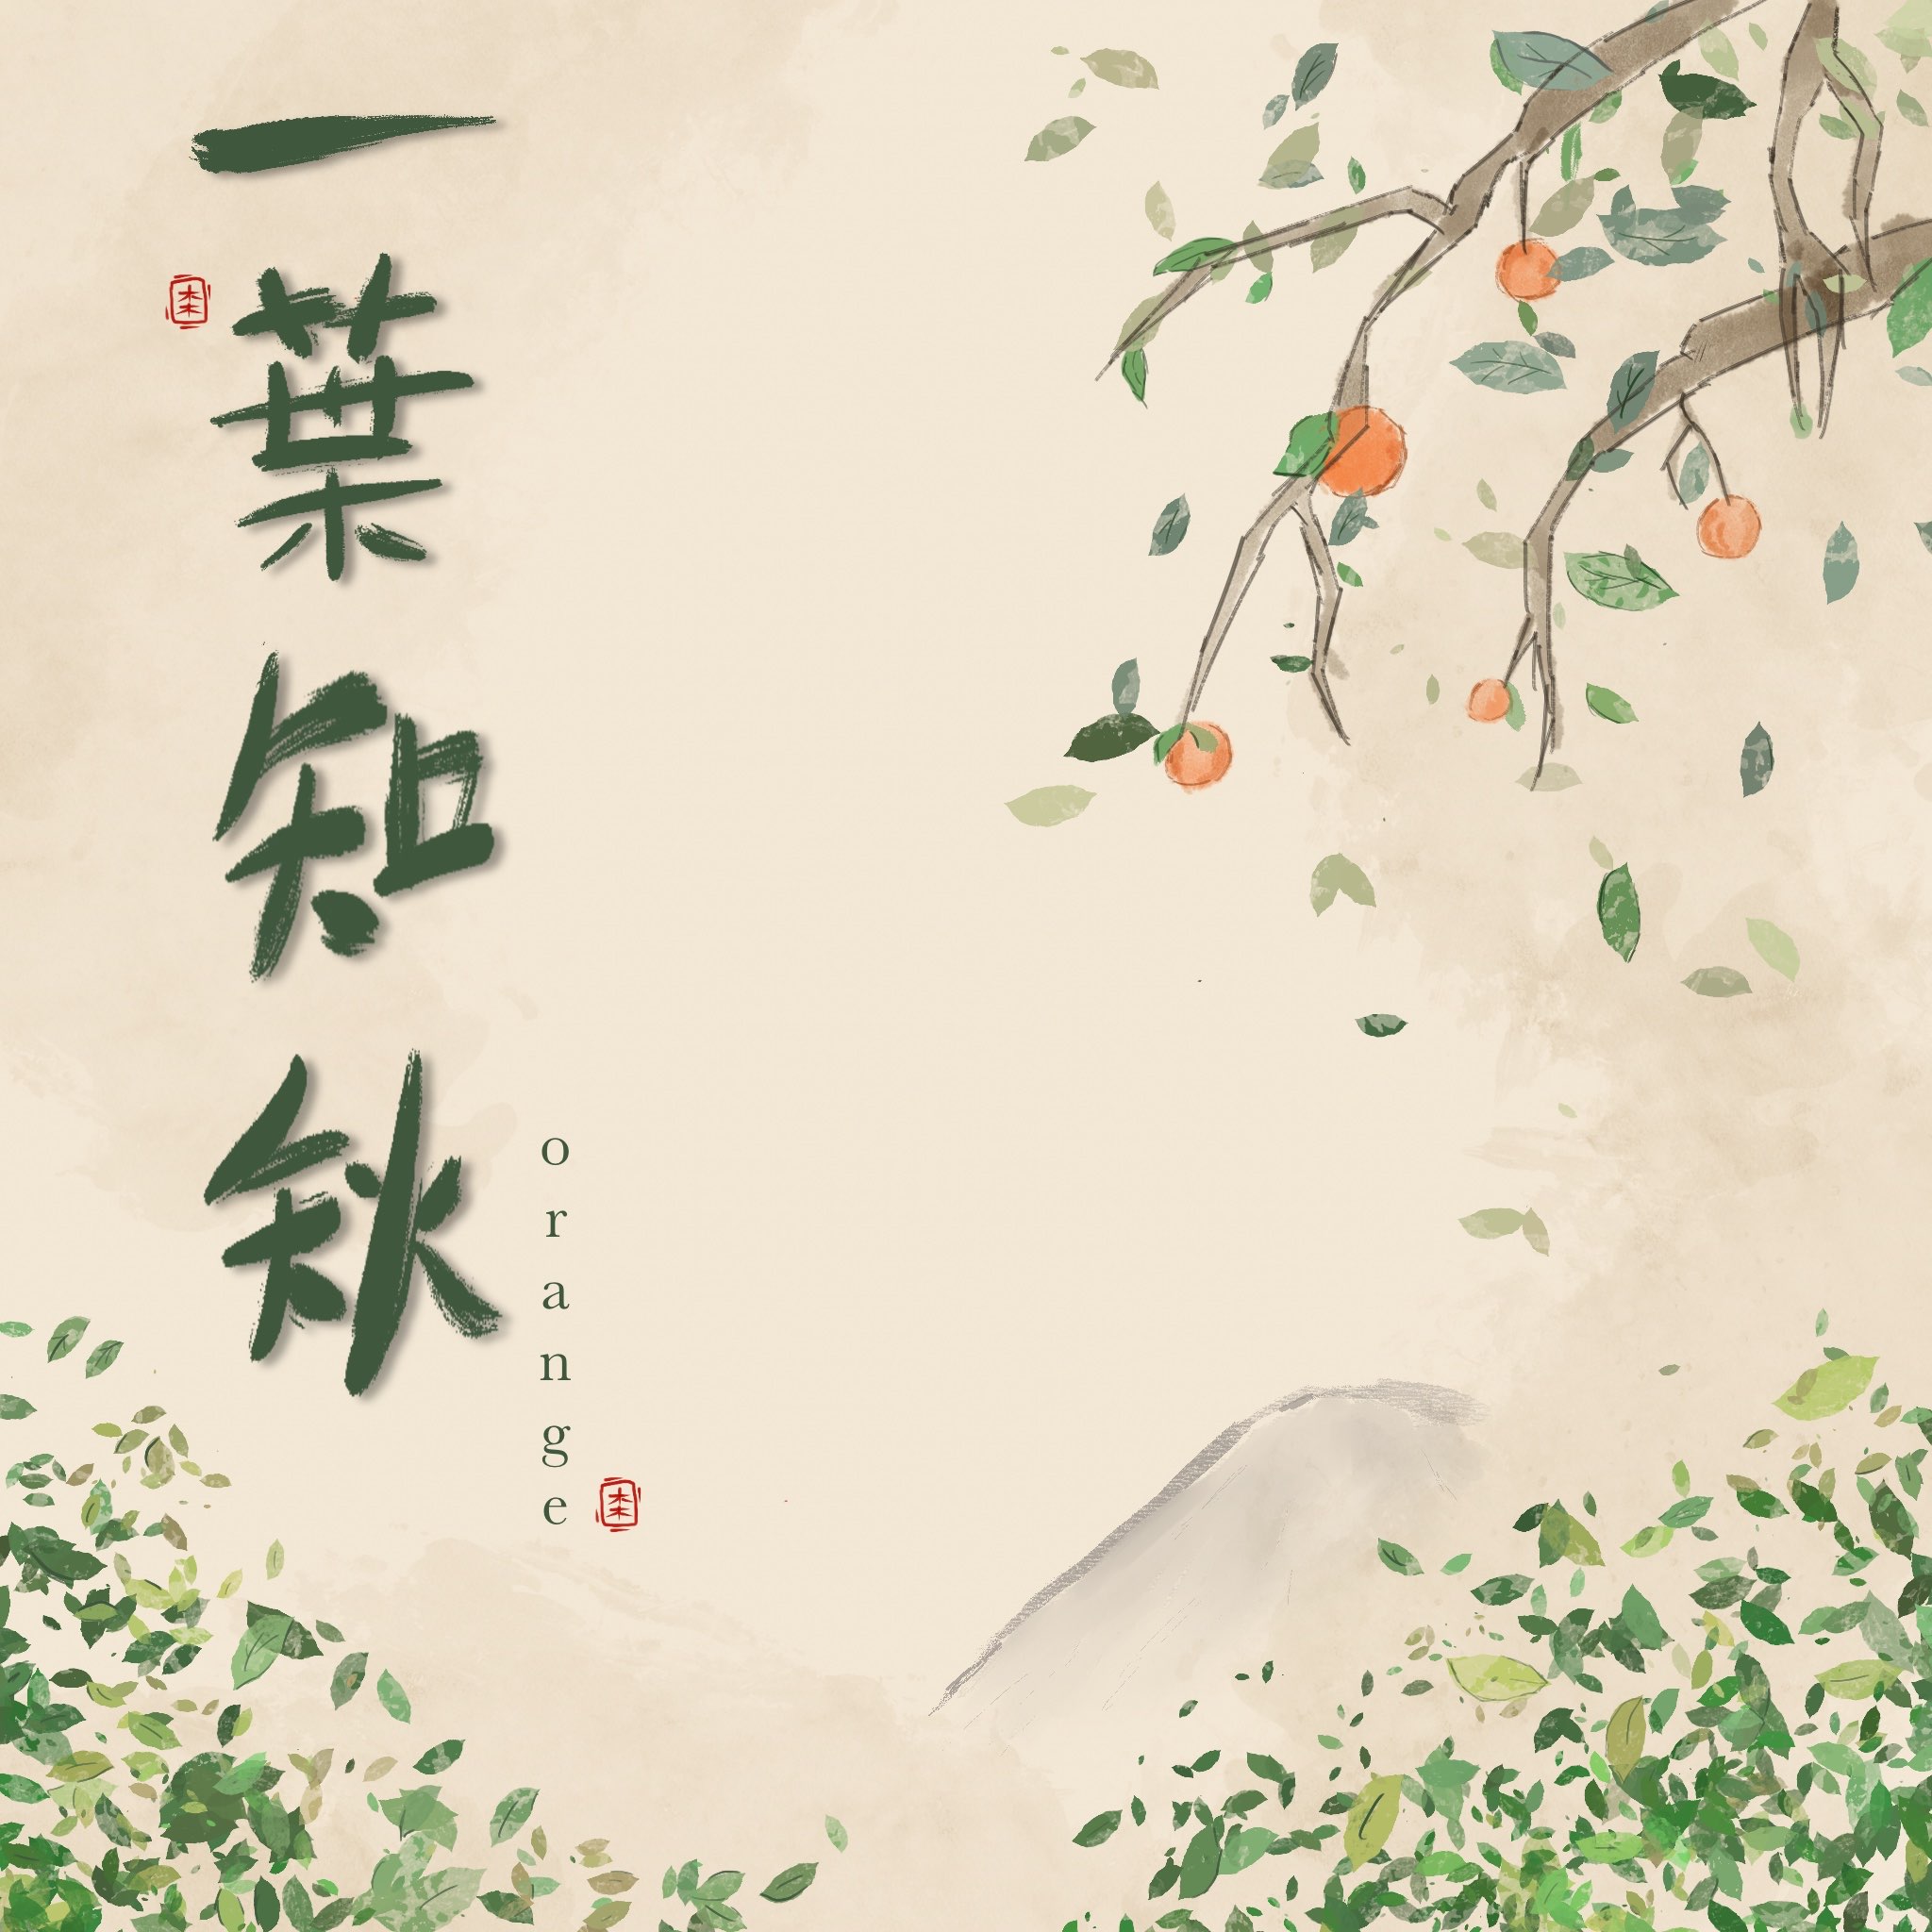 一葉知秋
orange